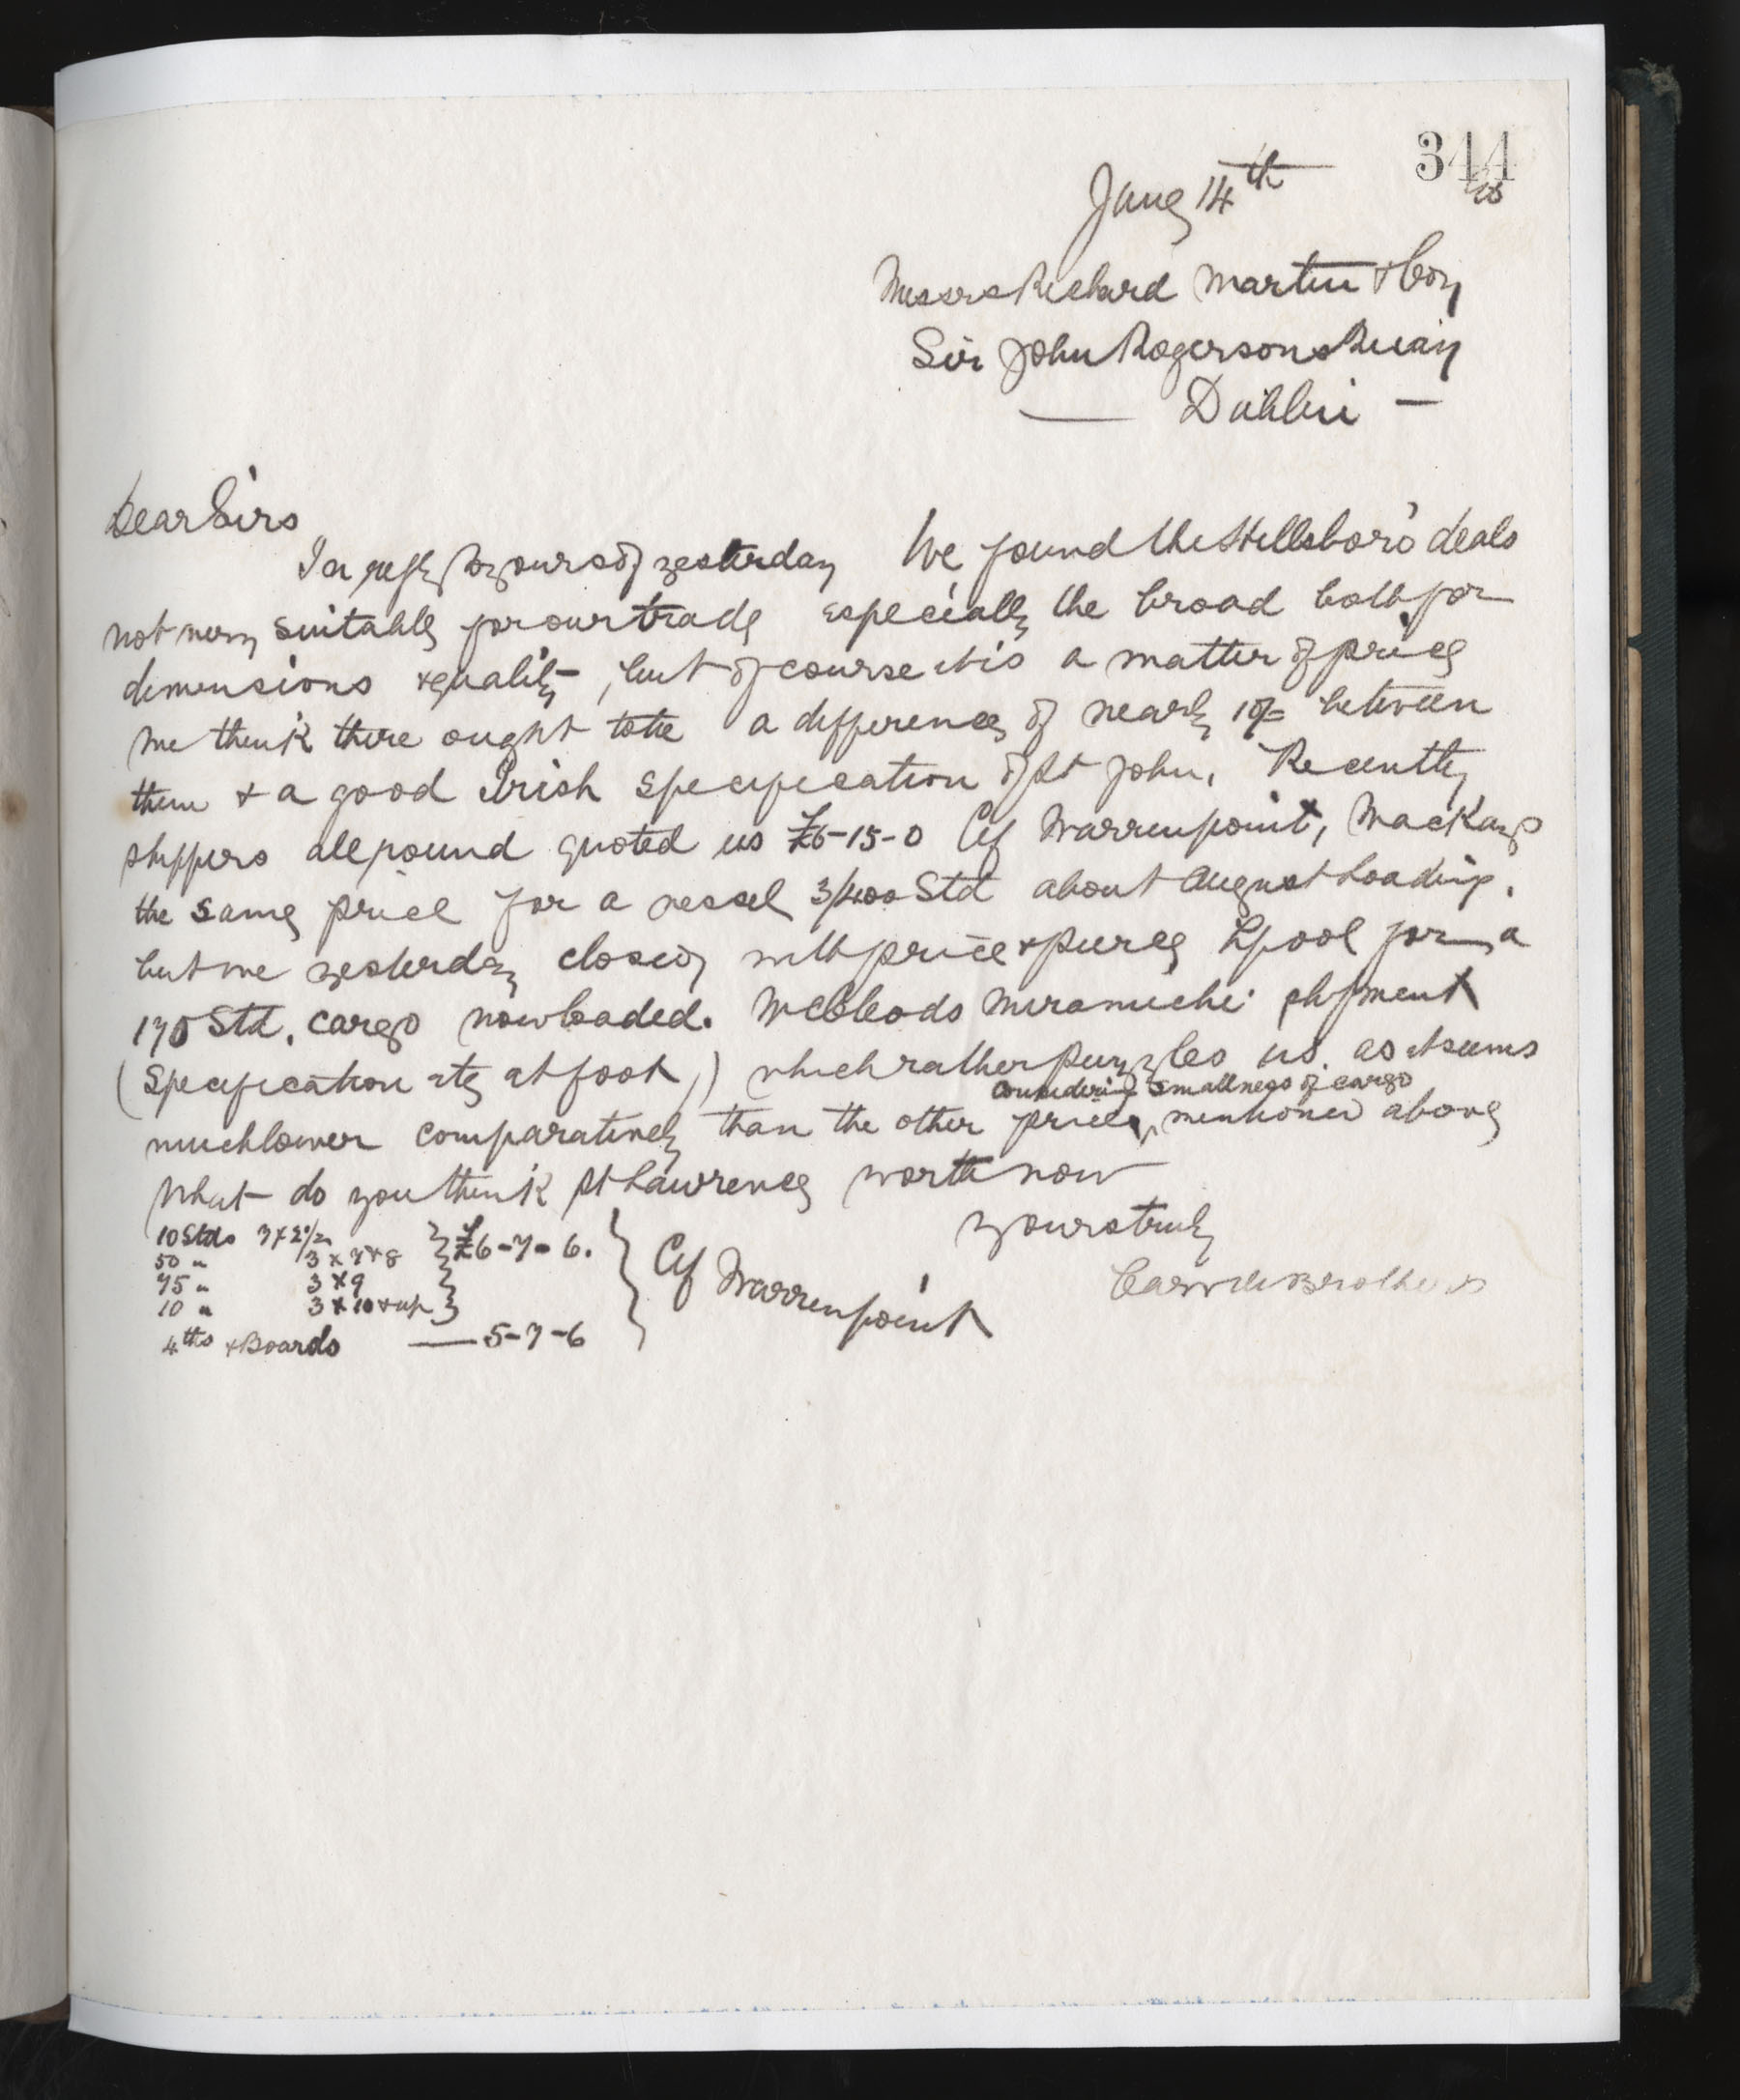 344
Jany 14th
Messrs Richard Martin & Coy
Sir John Rogersons Quay
Dublin
Dear Sirs
In reply to yours of yesterday We found the Hillsboro deals
not very suitable for our trade especially the broad both for
dimensions & quality, but of course it is a matter of price
we think there ought to be a difference of nearly 10/= between
them & a good Irish specification of St John. Recently
shippers all round quoted us £6-15-0 Cif Warrenpoint, Mackays
the same price for a vessel 3/400 Std about August loading.
but we yesterday closed with price & pierce Lpool for a
170 Std. cargo now loaded. McLeods Miramichi shipment
(Specification etc at foot,) which rather puzzles us. as it seems
considering smallness of cargo
much lower comparatively than the other prices, mentioned above
What do you think St Lawrence worth now
yours truly
Carvill Brothers
10 Stds 3 x 2 1/2
50 " 3 x 7 & 8 £6-7-6.
75 " 3 x 9
10 " 3 x 10 & up
4ths & Boards — 5-7-6
Cif Warrenpoint